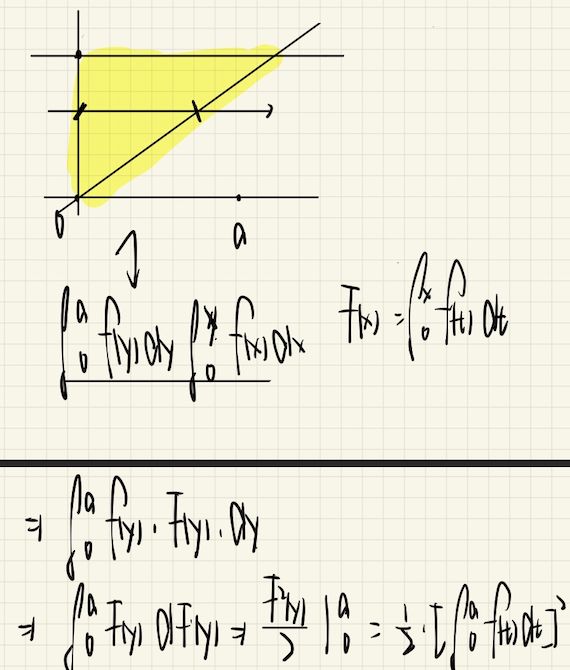 0 a
∫₀ᵃ f(y)dy ∫₀ʸ f(x)dx F(x) = ∫₀ˣ f(t) dt
⇒ ∫₀ᵃ f(y) · F(y) · dy
⇒ ∫₀ᵃ F(y) dF(y) ⇒ F²(y)/2 |₀ᵃ = 1/2 · [∫₀ᵃ f(t)dt]²